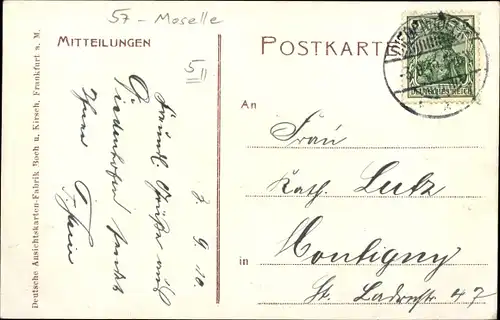 57 - Moselle
MITTEILUNGEN
5 II
8. 9. 10.
Freundl. Grüße aus
Diedenhofen sendet
Ihnen
POSTKARTE
DEUTSCHES REICH
An
Frau
Kath. Lutz
in Montigny
St. Ladrestr 47
Deutsche Ansichtskarten-Fabrik Boch u. Kirsch, Frankfurt a. M.